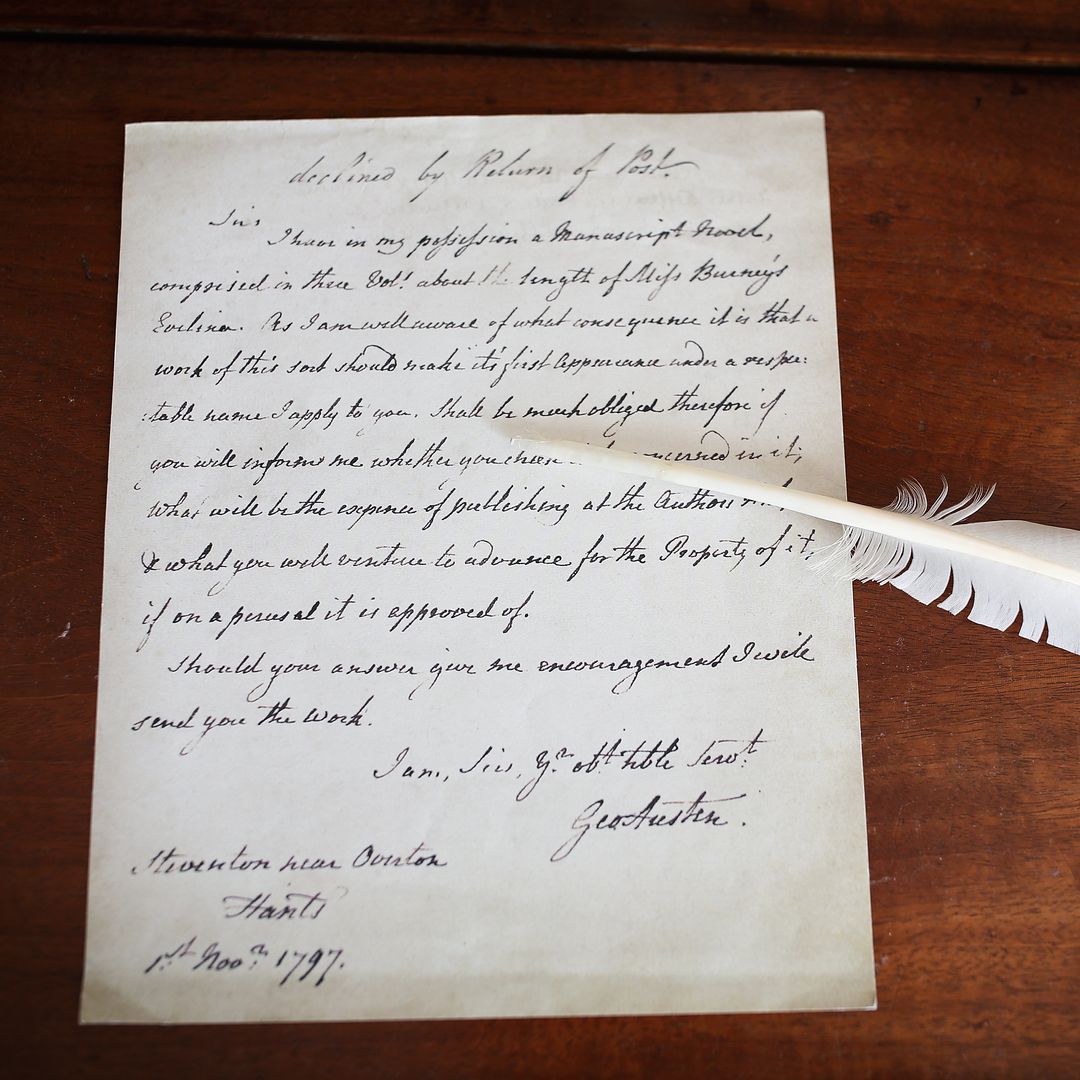 declined by Return of Post.
Sir,
I have in my possession a Manuscript Novel,
comprised in three Vols. about the length of Miss Burney's
Evelina. As I am well aware of what consequence it is that a
work of this sort should make it's first appearance under a respec:
:table name I apply to you. Shall be much obliged therefore if
you will inform me whether you chuse concerned in it;
What will be the expence of publishing at the Author's
& what you will venture to advance for the Property of it,
if on a perusal it is approved of.
Should your answer give me encouragement I will
send you the Work.
I am, Sir, Yr. obt. hble Servt.
Geo Austen.
Steventon near Overton
Hants
1st. Novr. 1797.